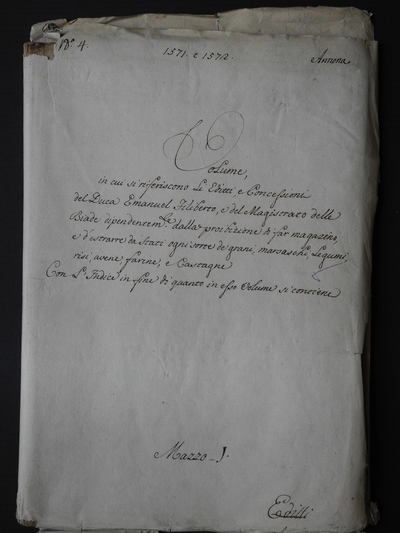 N.º 4.
1571. e 1572.
Annona
Volume,
in cui si riferiscono Li Editti e Concessioni
del Duca Emanuel Filiberto, e del Magistrato delle
Biade dipendentem.te dalla proibizione di far magazeno,
e d'estrarre da Stati ogni sorte de grani, marsaschi, Legumi,
risi, avene, farine, e Castagne
Con L'Indice in fine di quanto in esso Volume si contiene
Mazzo - 1.
Editti